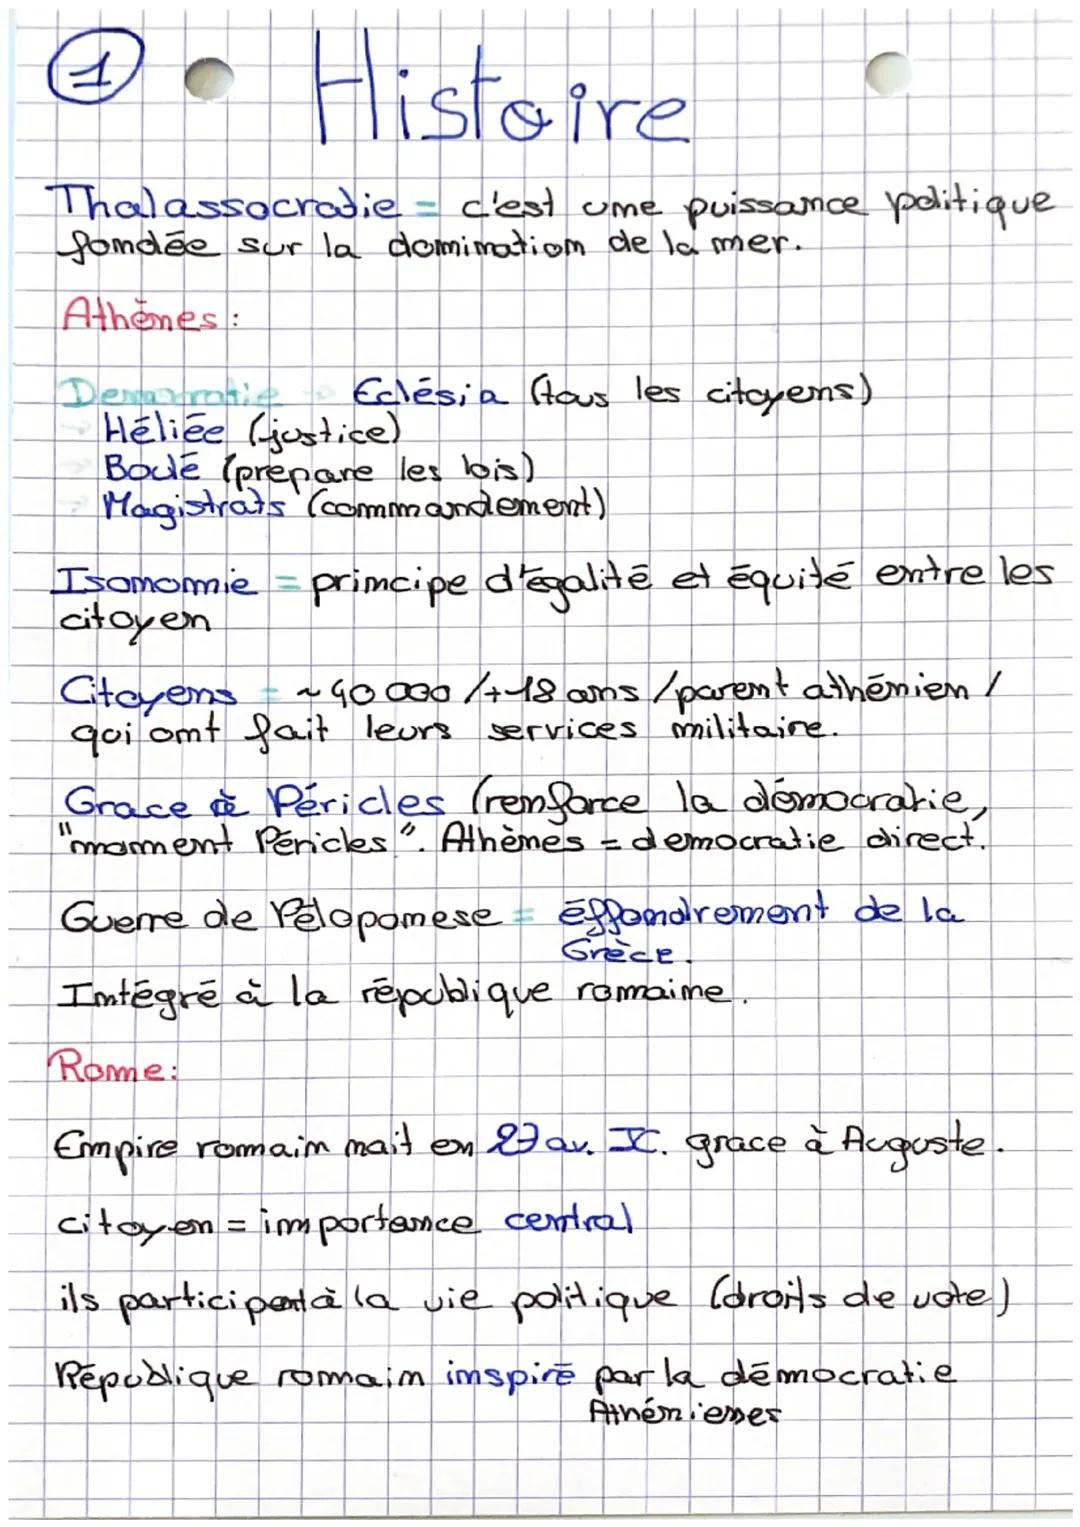 1
Histoire
Thalassocratie = c'est une puissance politique
fondée sur la domination de la mer.
Athènes :
Democratie → Eclésia (tous les citoyens)
→ Héliée (justice)
→ Boulé (prépare les lois)
→ Magistrats (commmandement)
Isonomie = principe d'égalité et équité entre les
citoyen
Citoyens = ~40 000 /+18 ans /parent athénien /
qui ont fait leurs services militaire.
Grace à Péricles (renforce la démocratie,
"moment Péricles". Athènes = democratie direct.
Guerre de Péloponese = éffondrement de la
Grèce.
Intégré à la république romaine.
Rome:
Empire romain nait en 27 av. JC. grace à Auguste.
citoyen = importance central
ils participent à la vie politique (droits de vote)
République romain inspiré par la démocratie
Athéniennes